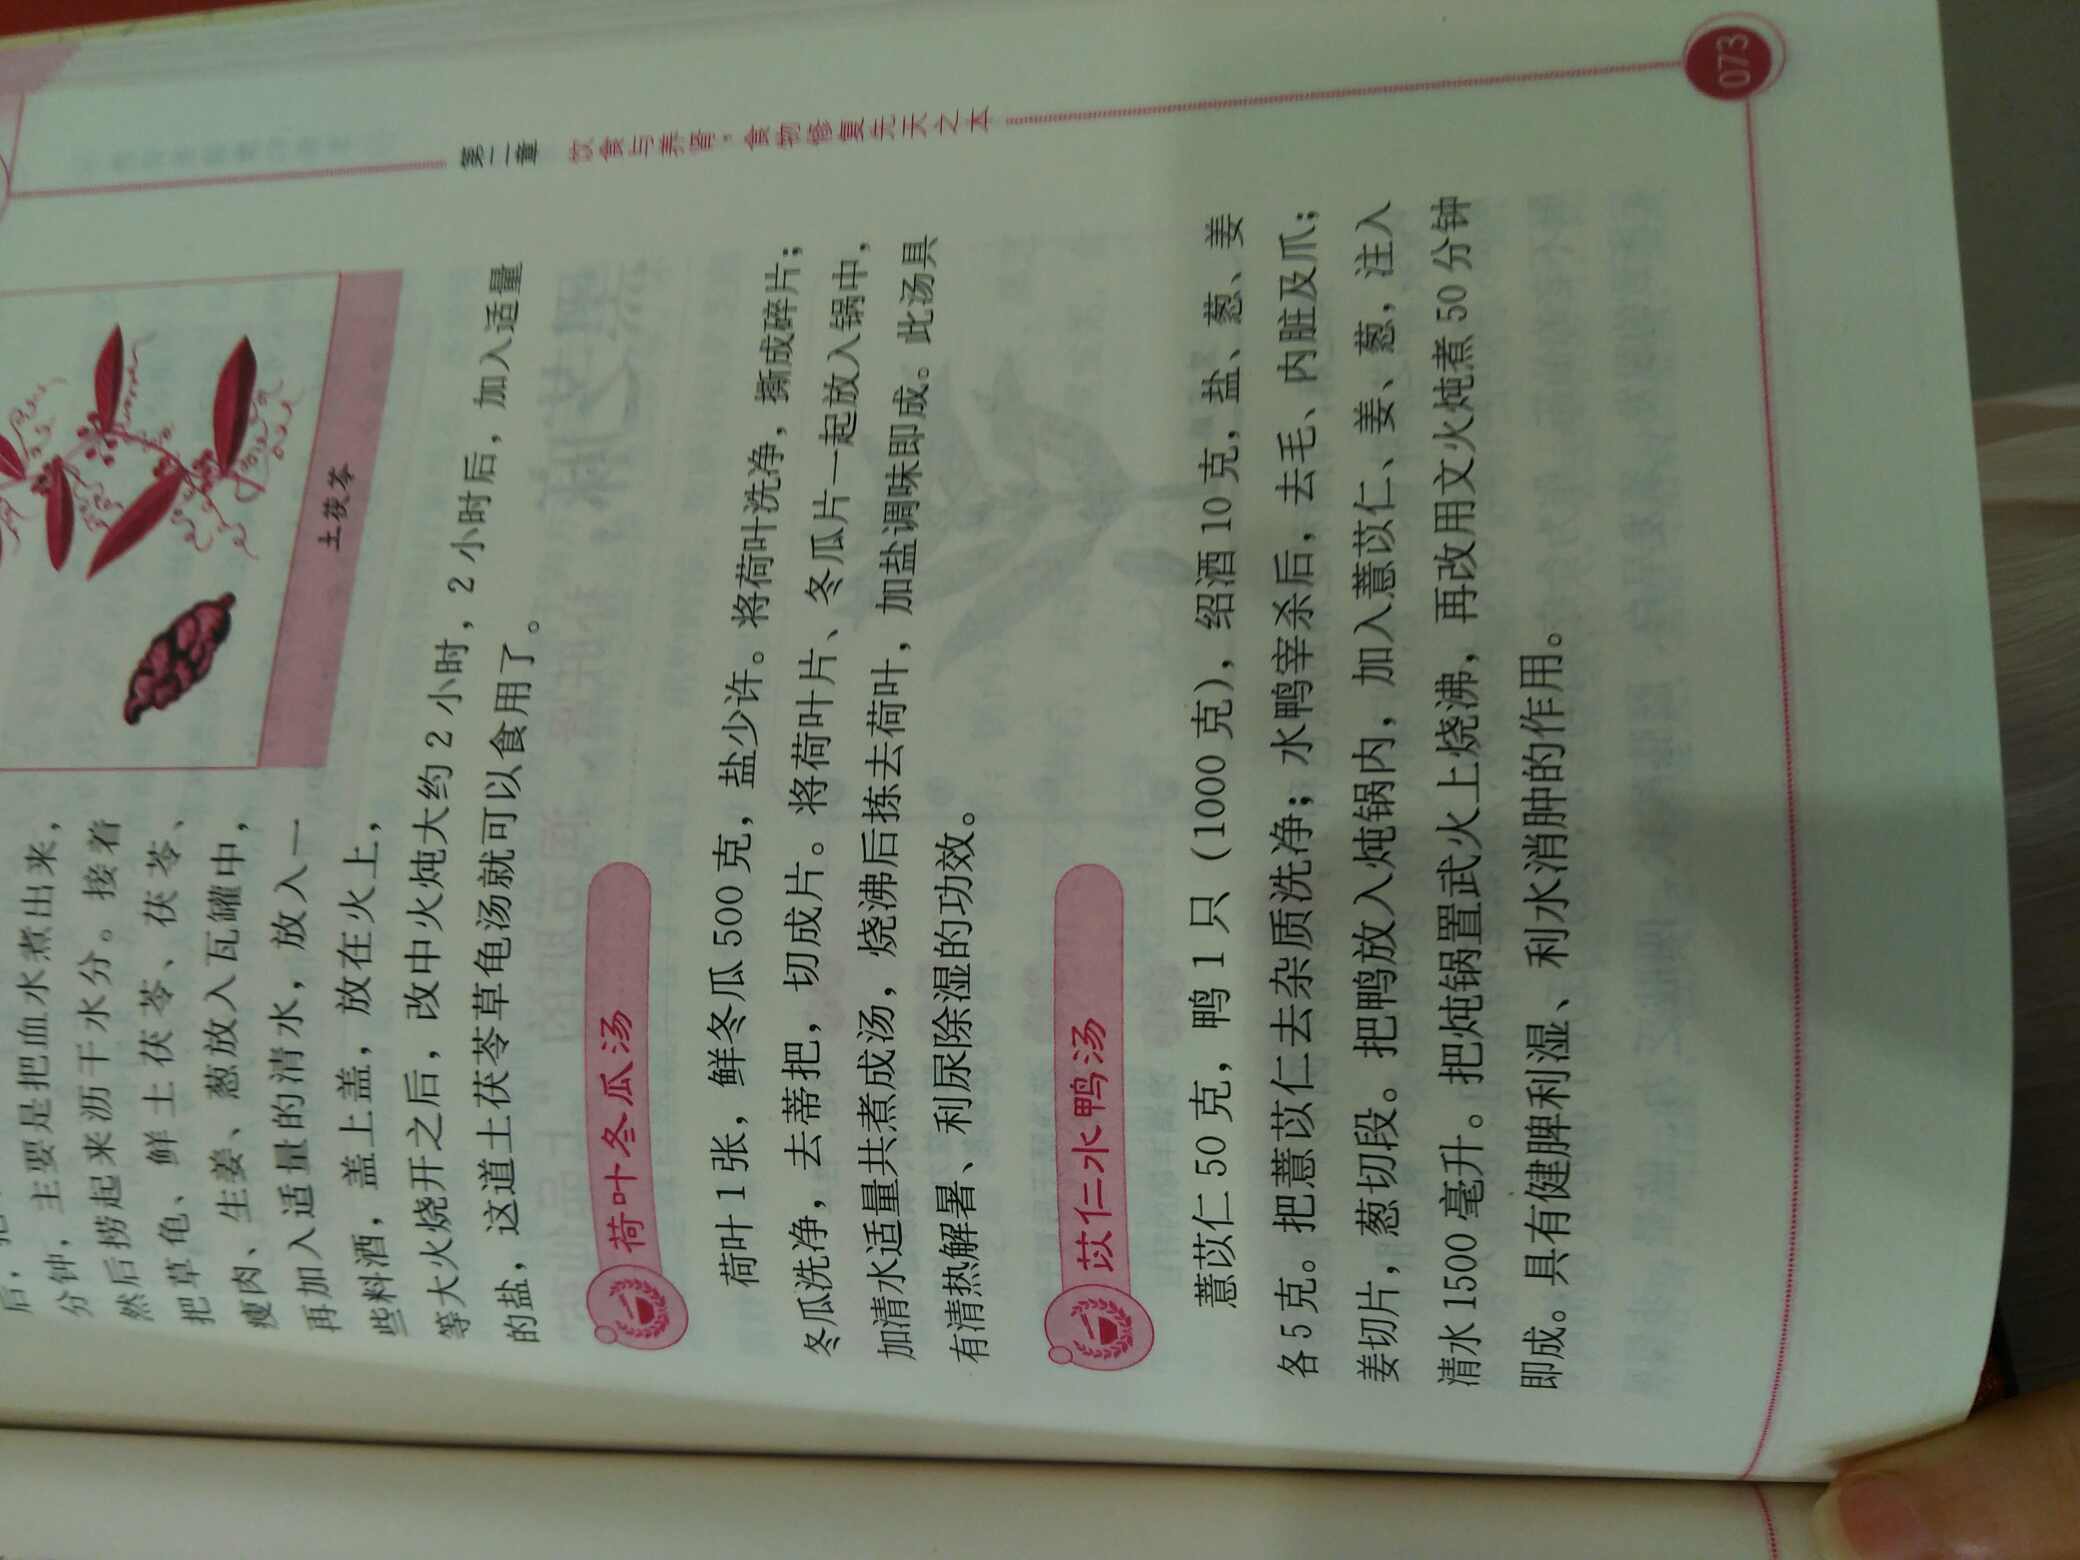 第二章 饮食与养肾，食物修复先天之本
分钟，主要是把血水煮出来，
然后捞起来沥干水分。接着
把草龟、鲜土茯苓、茯苓、
瘦肉、生姜、葱放入瓦罐中，
再加入适量的清水，放入一
些料酒，盖上盖，放在火上，
土茯苓
等大火烧开之后，改中火炖大约2小时，2小时后，加入适量
的盐，这道土茯苓草龟汤就可以食用了。
荷叶冬瓜汤
荷叶1张，鲜冬瓜500克，盐少许。将荷叶洗净，撕成碎片；
冬瓜洗净，去蒂把，切成片。将荷叶片、冬瓜片一起放入锅中，
加清水适量共煮成汤，烧沸后拣去荷叶，加盐调味即成。此汤具
有清热解暑、利尿除湿的功效。
苡仁水鸭汤
薏苡仁50克，鸭1只（1000克），绍酒10克，盐、葱、姜
各5克。把薏苡仁去杂质洗净；水鸭宰杀后，去毛、内脏及爪；
姜切片，葱切段。把鸭放入炖锅内，加入薏苡仁、姜、葱，注入
清水1500毫升。把炖锅置武火上烧沸，再改用文火炖煮50分钟
即成。具有健脾利湿、利水消肿的作用。
073